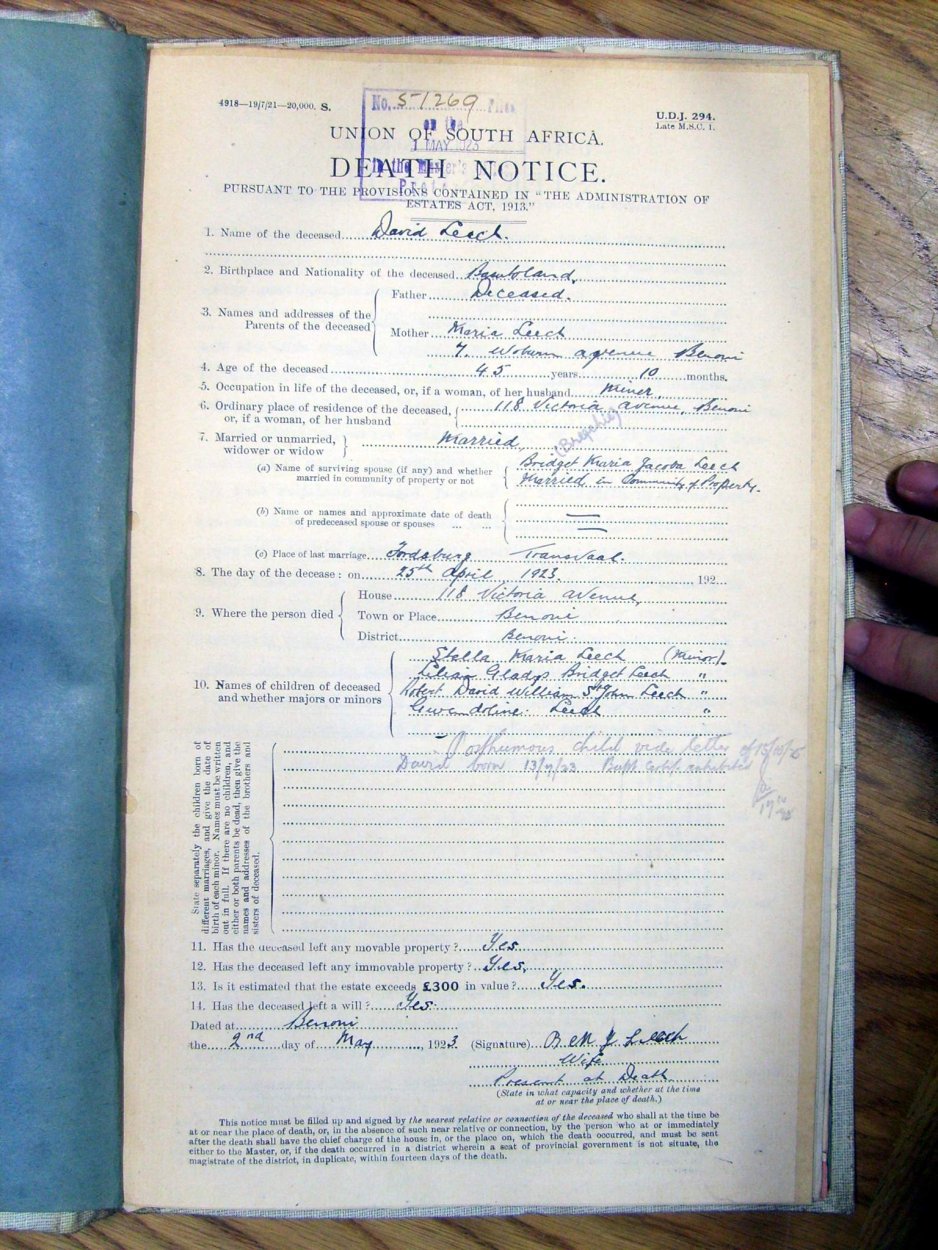 4918—19/7/21—20,000. S.
No. 51269 Filed
on the
1 MAY 1923
In the Master's
U.D.J. 294.
Late M.S.C. 1.
UNION OF SOUTH AFRICA.
DEATH NOTICE.
PURSUANT TO THE PROVISIONS CONTAINED IN "THE ADMINISTRATION OF
ESTATES ACT, 1913."
1. Name of the deceased David Leech.
2. Birthplace and Nationality of the deceased Basutoland.
3. Names and addresses of the Parents of the deceased
Father Deceased.
Mother Maria Leech
7. Woburn avenue Benoni
4. Age of the deceased 45 years 10 months.
5. Occupation in life of the deceased, or, if a woman, of her husband Miner
6. Ordinary place of residence of the deceased, 118 Victoria avenue, Benoni
or, if a woman, of her husband
7. Married or unmarried, Married
widower or widow
(a) Name of surviving spouse (if any) and whether Bridget Maria Jacoba Leech
married in community of property or not Married in Community of Property.
(b) Name or names and approximate date of death
of predeceased spouse or spouses ... ...
(c) Place of last marriage Fordsburg Transvaal.
8. The day of the decease: on 25th April 1923. 192
9. Where the person died
House 118 Victoria avenue,
Town or Place Benoni
District Benoni.
10. Names of children of deceased
and whether majors or minors
Stella Maria Leech (Minor)
Lilian Gladys Bridget Leech "
Robert David William St John Leech "
Gwendoline Leech "
Posthumous child vide letter of
David born 13/7/23
State separately the children born of
different marriages, and give the date of
birth of each minor. Names must be written
out in full. If there are no children, and
either or both parents be dead, then give the
names and addresses of the brothers and
sisters of deceased.
11. Has the deceased left any movable property? Yes
12. Has the deceased left any immovable property? Yes.
13. Is it estimated that the estate exceeds £300 in value? Yes.
14. Has the deceased left a will? Yes.
Dated at Benoni
the 2nd day of May, 1923 (Signature) B M J Leech
Wife
Present at Death
(State in what capacity and whether at the time
at or near the place of death.)
This notice must be filled up and signed by the nearest relative or connection of the deceased who shall at the time be
at or near the place of death, or, in the absence of such near relative or connection, by the person who at or immediately
after the death shall have the chief charge of the house in, or the place on, which the death occurred, and must be sent
either to the Master, or, if the death occurred in a district wherein a seat of provincial government is not situate, the
magistrate of the district, in duplicate, within fourteen days of the death.